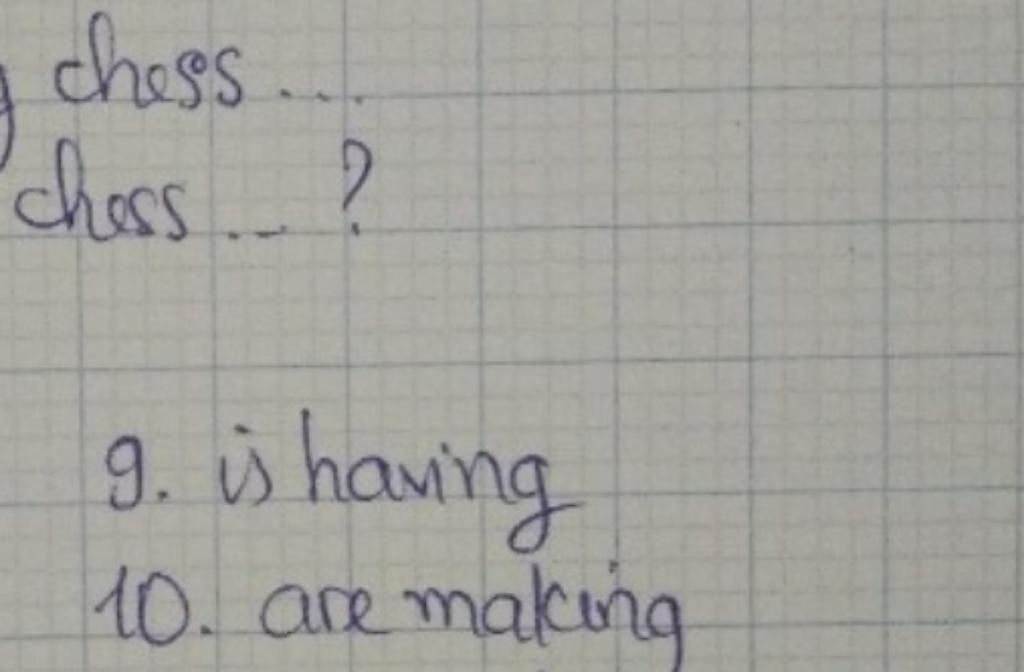 chess ...
chess ... ?
9. is having
10. are making